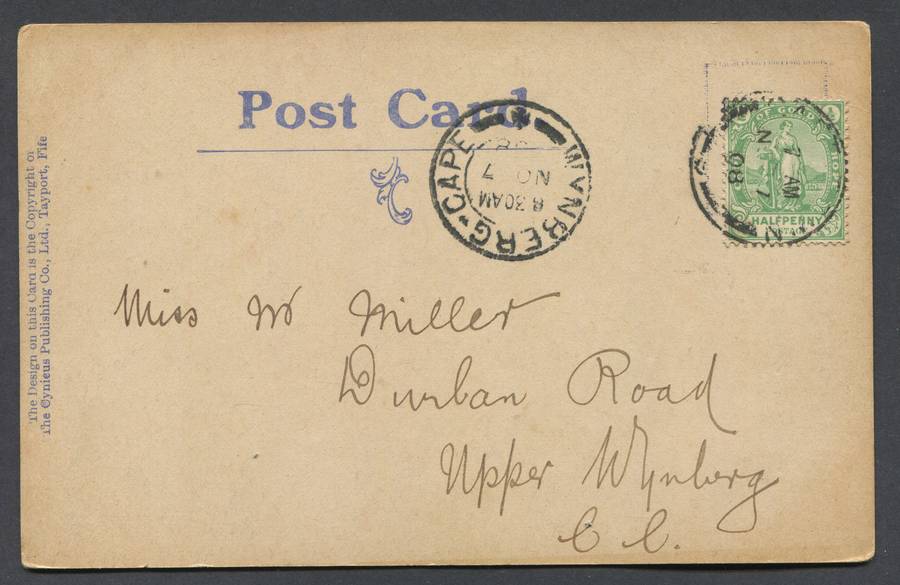 Post Card
The Design on this Card is the Copyright of
The Cynicus Publishing Co., Ltd., Tayport, Fife
WYNBERG · CAPE
8.30AM
NO 7
08
AM
7
08
OF GOOD
HALFPENNY
POSTAGE
Miss W Miller
Durban Road
Upper Wynberg
C. C.